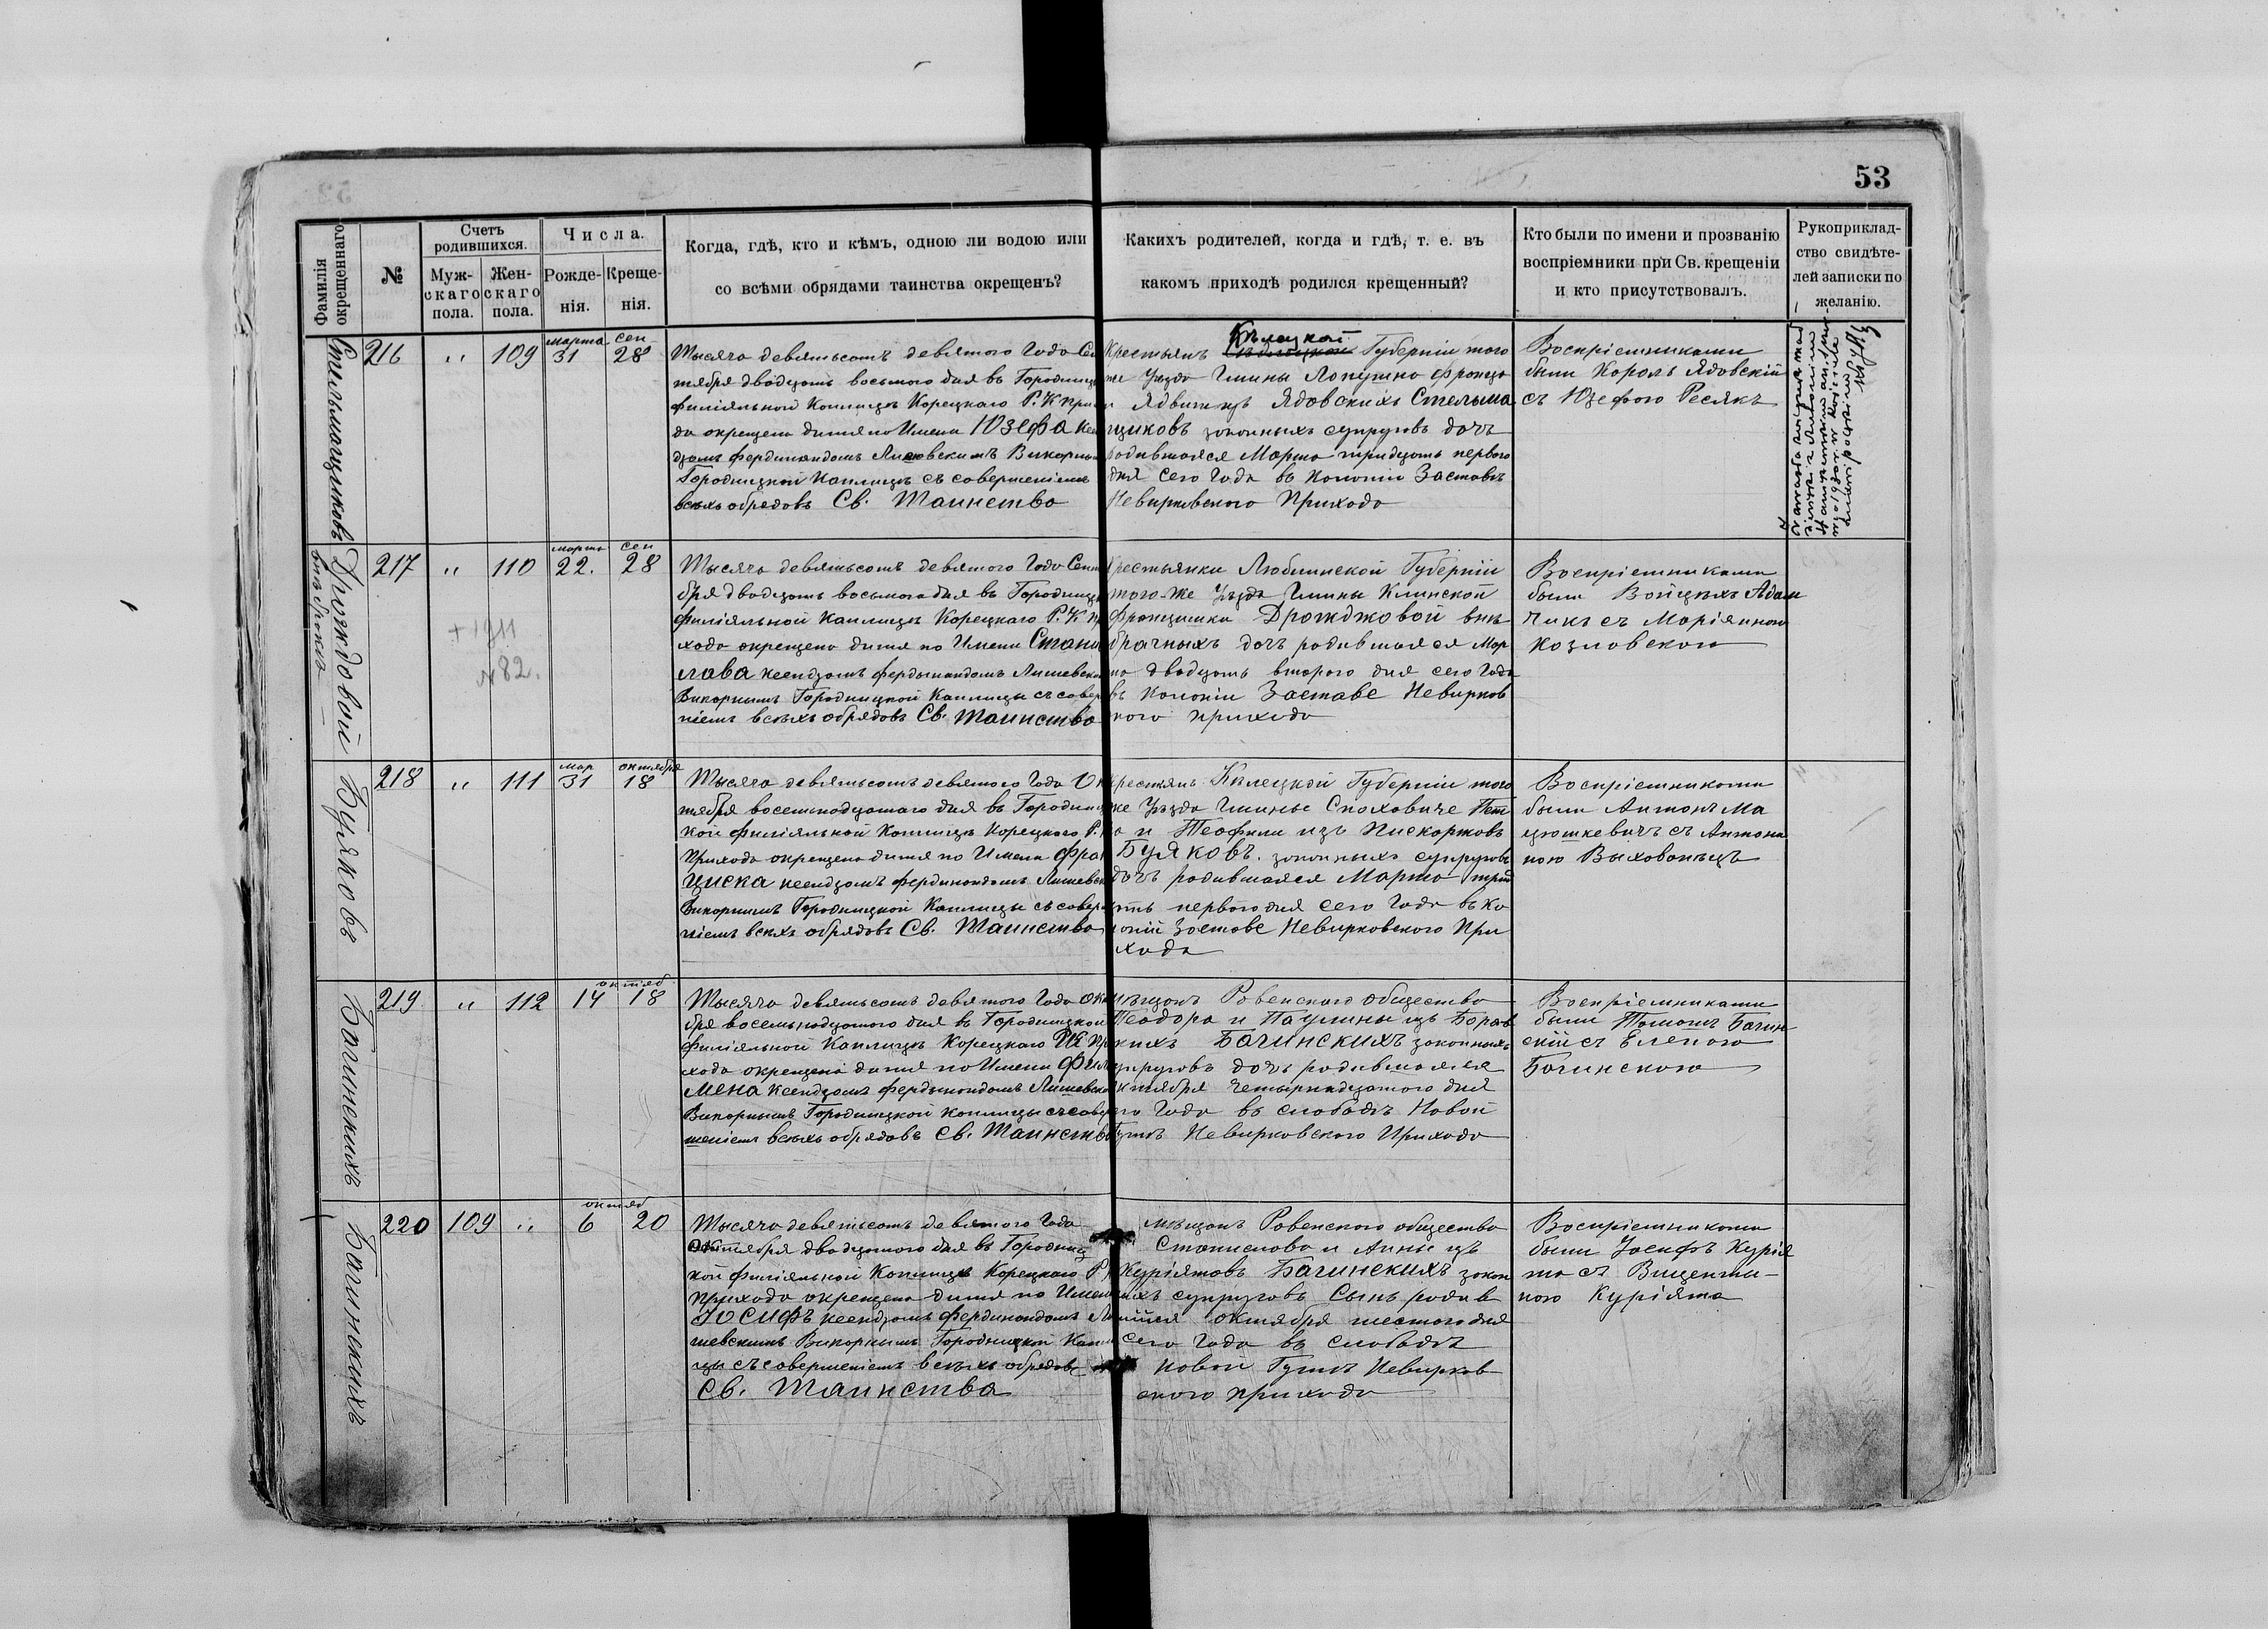 53
Фамилія окрещеннаго
№
Счетъ родившихся.
Муж-скаго пола.
Жен-скаго пола.
Числа.
Рожде-нія.
Креще-нія.
Когда, гдѣ, кто и кѣмъ, одною ли водою или
со всѣми обрядами таинства окрещенъ?
Какихъ родителей, когда и гдѣ, т. е. въ
какомъ приходѣ родился крещенный?
Кто были по имени и прозванію
воспріемники при Св. крещеніи
и кто присутствовалъ.
Рукоприклад-
ство свидѣте-
лей записки по
желанію.
Стельмащиковъ
216 " 109 марта 31 сен 28
Тысяча девятьсотъ девятого Года Сен
тября двадцать восьмого дня въ Городниц
филіяльной Каплицѣ Корецкаго Р. К. При
да окрещена дитя по Имени Юзефа Ксен
дзомъ Фердинандомъ Викарнымъ
Городницкой Каплицѣ съ совершеніемъ
всѣхъ обрядовъ Св. Таинства
Крестьянъ Кѣлецкой Губерніи того
же Уѣзда Гмины Лопушно Францы
и Ядвиги изъ Ядовскихъ Стельма
щиковъ законныхъ супруговъ дочь
родившаяся Марта тридцать первого
дня сего Года въ Колоніи Заставѣ
Невирковского Прихода
Воспріемниками
были Кароль Ядовскій
съ Юзефою Ресякъ
Дрождовій
внѣ брачн.
217 " 110 марта 22. сен 28
+ 1911
№ 82.
Тысяча девятьсотъ девятого Года Сент
бря двадцать восьмого дня въ Городниц
филіяльной Каплицѣ Корецкаго Р. К. Пр
хода окрещена дитя по Имени Стани
лава ксендзомъ Фердынандомъ Лишевск
Викарнымъ Городницкой Каплицы съ совер
ніемъ всѣхъ обрядовъ Св. Таинства
Крестьянки Люблинской Губерніи
того-же Уѣзда Гмины Клинской
Францишки Дрожджовой внѣ
брачныхъ дочъ родившаяся Мар
та двадцать второго дня сего Года
въ Колоніи Заставе Невирков
ского прихода
Воспріемниками
были Войцѣхъ Адам
чикъ съ Маріянною
Козловскою
Буяковъ
218 " 111 мар 31 октября 18
Тысяча девятьсотъ девятого Года Ок
тября восемнадцатаго дня въ Городниц
кой филіяльной Каплицѣ Корецкого Р. К
Прихода окрещена дитя по Имени Фран
циска ксендзомъ Фердинандомъ Лишевск
Викарнымъ Городницкой Каплицы съ совер
ніемъ всѣхъ обрядовъ Св. Таинства
Крестьянъ Кѣлецкой Губерніи того
же Уѣзда Гмины Снохович​е Пет
ра и Теофили изъ Пискоржовъ
Буяковъ. законныхъ супруговъ
дочъ родившаяся Марта трид
цать первого дня сего Года въ Ко
лоніи Заставе Невирковского При
хода
Воспріемниками
были Антонъ Ма
цюшкевичъ съ Антони
ною Выхованецъ
Багинскихъ
219 " 112 октяб 14 18
Тысяча девятьсотъ девятого Года Октя
бря восемьнадцатого дня въ Городницкой
филіяльной Каплицѣ Корецкаго Р.К. Пр
хода окрещена дитя по Имени Фил
мена ксендзомъ Фердынандомъ Лишевск
Викарнымъ Городницкой Каплицы съ совер
шеніемъ всѣхъ обрядовъ Св. Таинства
Мѣщанъ Ровенского общества
Теодора и Паулины изъ Боров
скихъ Багинскихъ законныхъ
супруговъ дочь родившаяся
Октября четырнадцатого дня
сего Года въ слободѣ Новой
Гутѣ Невирковского Прихода
Воспріемниками
были Томашъ Багин-
скій съ Еленою
Багинскою
Багинскихъ
220 109 " октяб 6 20
Тысяча девятьсотъ девятого Года
Октября двадцатого дня въ Городниц
кой филіяльной Каплицѣ Корецкаго Р К
Прихода окрещена дитя по Имени
Іосифъ ксендзомъ Фердинандомъ Ли
шевскимъ Викарнымъ Городницкой Капли
цы съ совершеніемъ всѣхъ обрядовъ
Св. Таинства
Мѣщанъ Ровенского общества
Станислова и Анны изъ
Курiятовъ Багинскихъ закон
ныхъ супруговъ Сынъ родив
шійся Октября шестого дня
сего Года въ слободѣ
Новой Гутѣ Невирков
ского прихода
Воспріемниками
были Іосифъ Курія
та съ Вицента-
ною Куріята